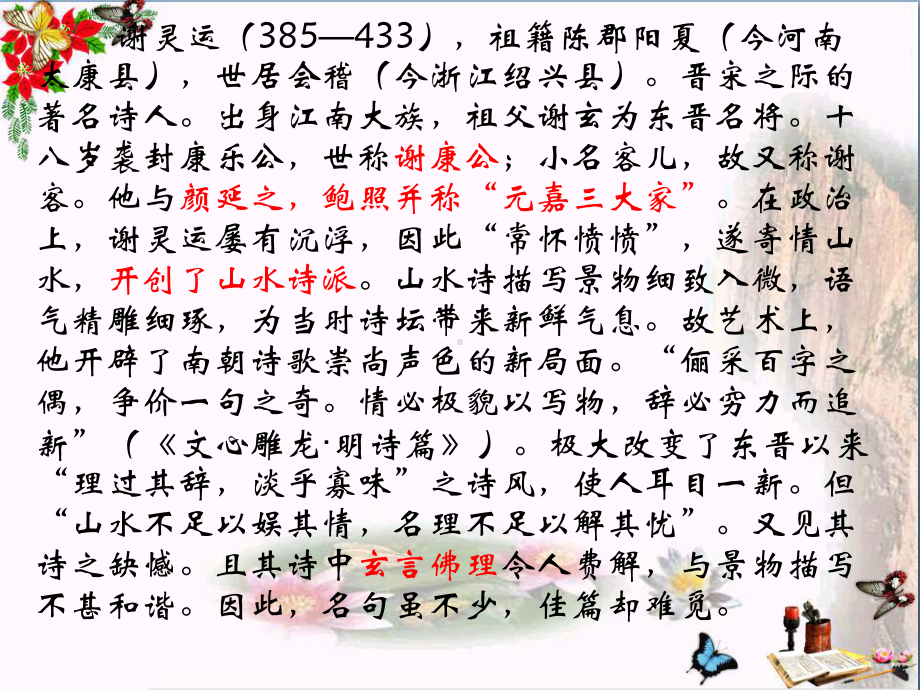 谢灵运（385—433），祖籍陈郡阳夏（今河南
太康县），世居会稽（今浙江绍兴县）。晋宋之际的
著名诗人。出身江南大族，祖父谢玄为东晋名将。十
八岁袭封康乐公，世称谢康公；小名客儿，故又称谢
客。他与颜延之，鲍照并称“元嘉三大家”。在政治
上，谢灵运屡有沉浮，因此“常怀愤愤”，遂寄情山
水，开创了山水诗派。山水诗描写景物细致入微，语
气精雕细琢，为当时诗坛带来新鲜气息。故艺术上，
他开辟了南朝诗歌崇尚声色的新局面。“俪采百字之
偶，争价一句之奇。情必极貌以写物，辞必穷力而追
新”（《文心雕龙·明诗篇》）。极大改变了东晋以来
“理过其辞，淡乎寡味”之诗风，使人耳目一新。但
“山水不足以娱其情，名理不足以解其忧”。又见其
诗之缺憾。且其诗中玄言佛理令人费解，与景物描写
不甚和谐。因此，名句虽不少，佳篇却难觅。